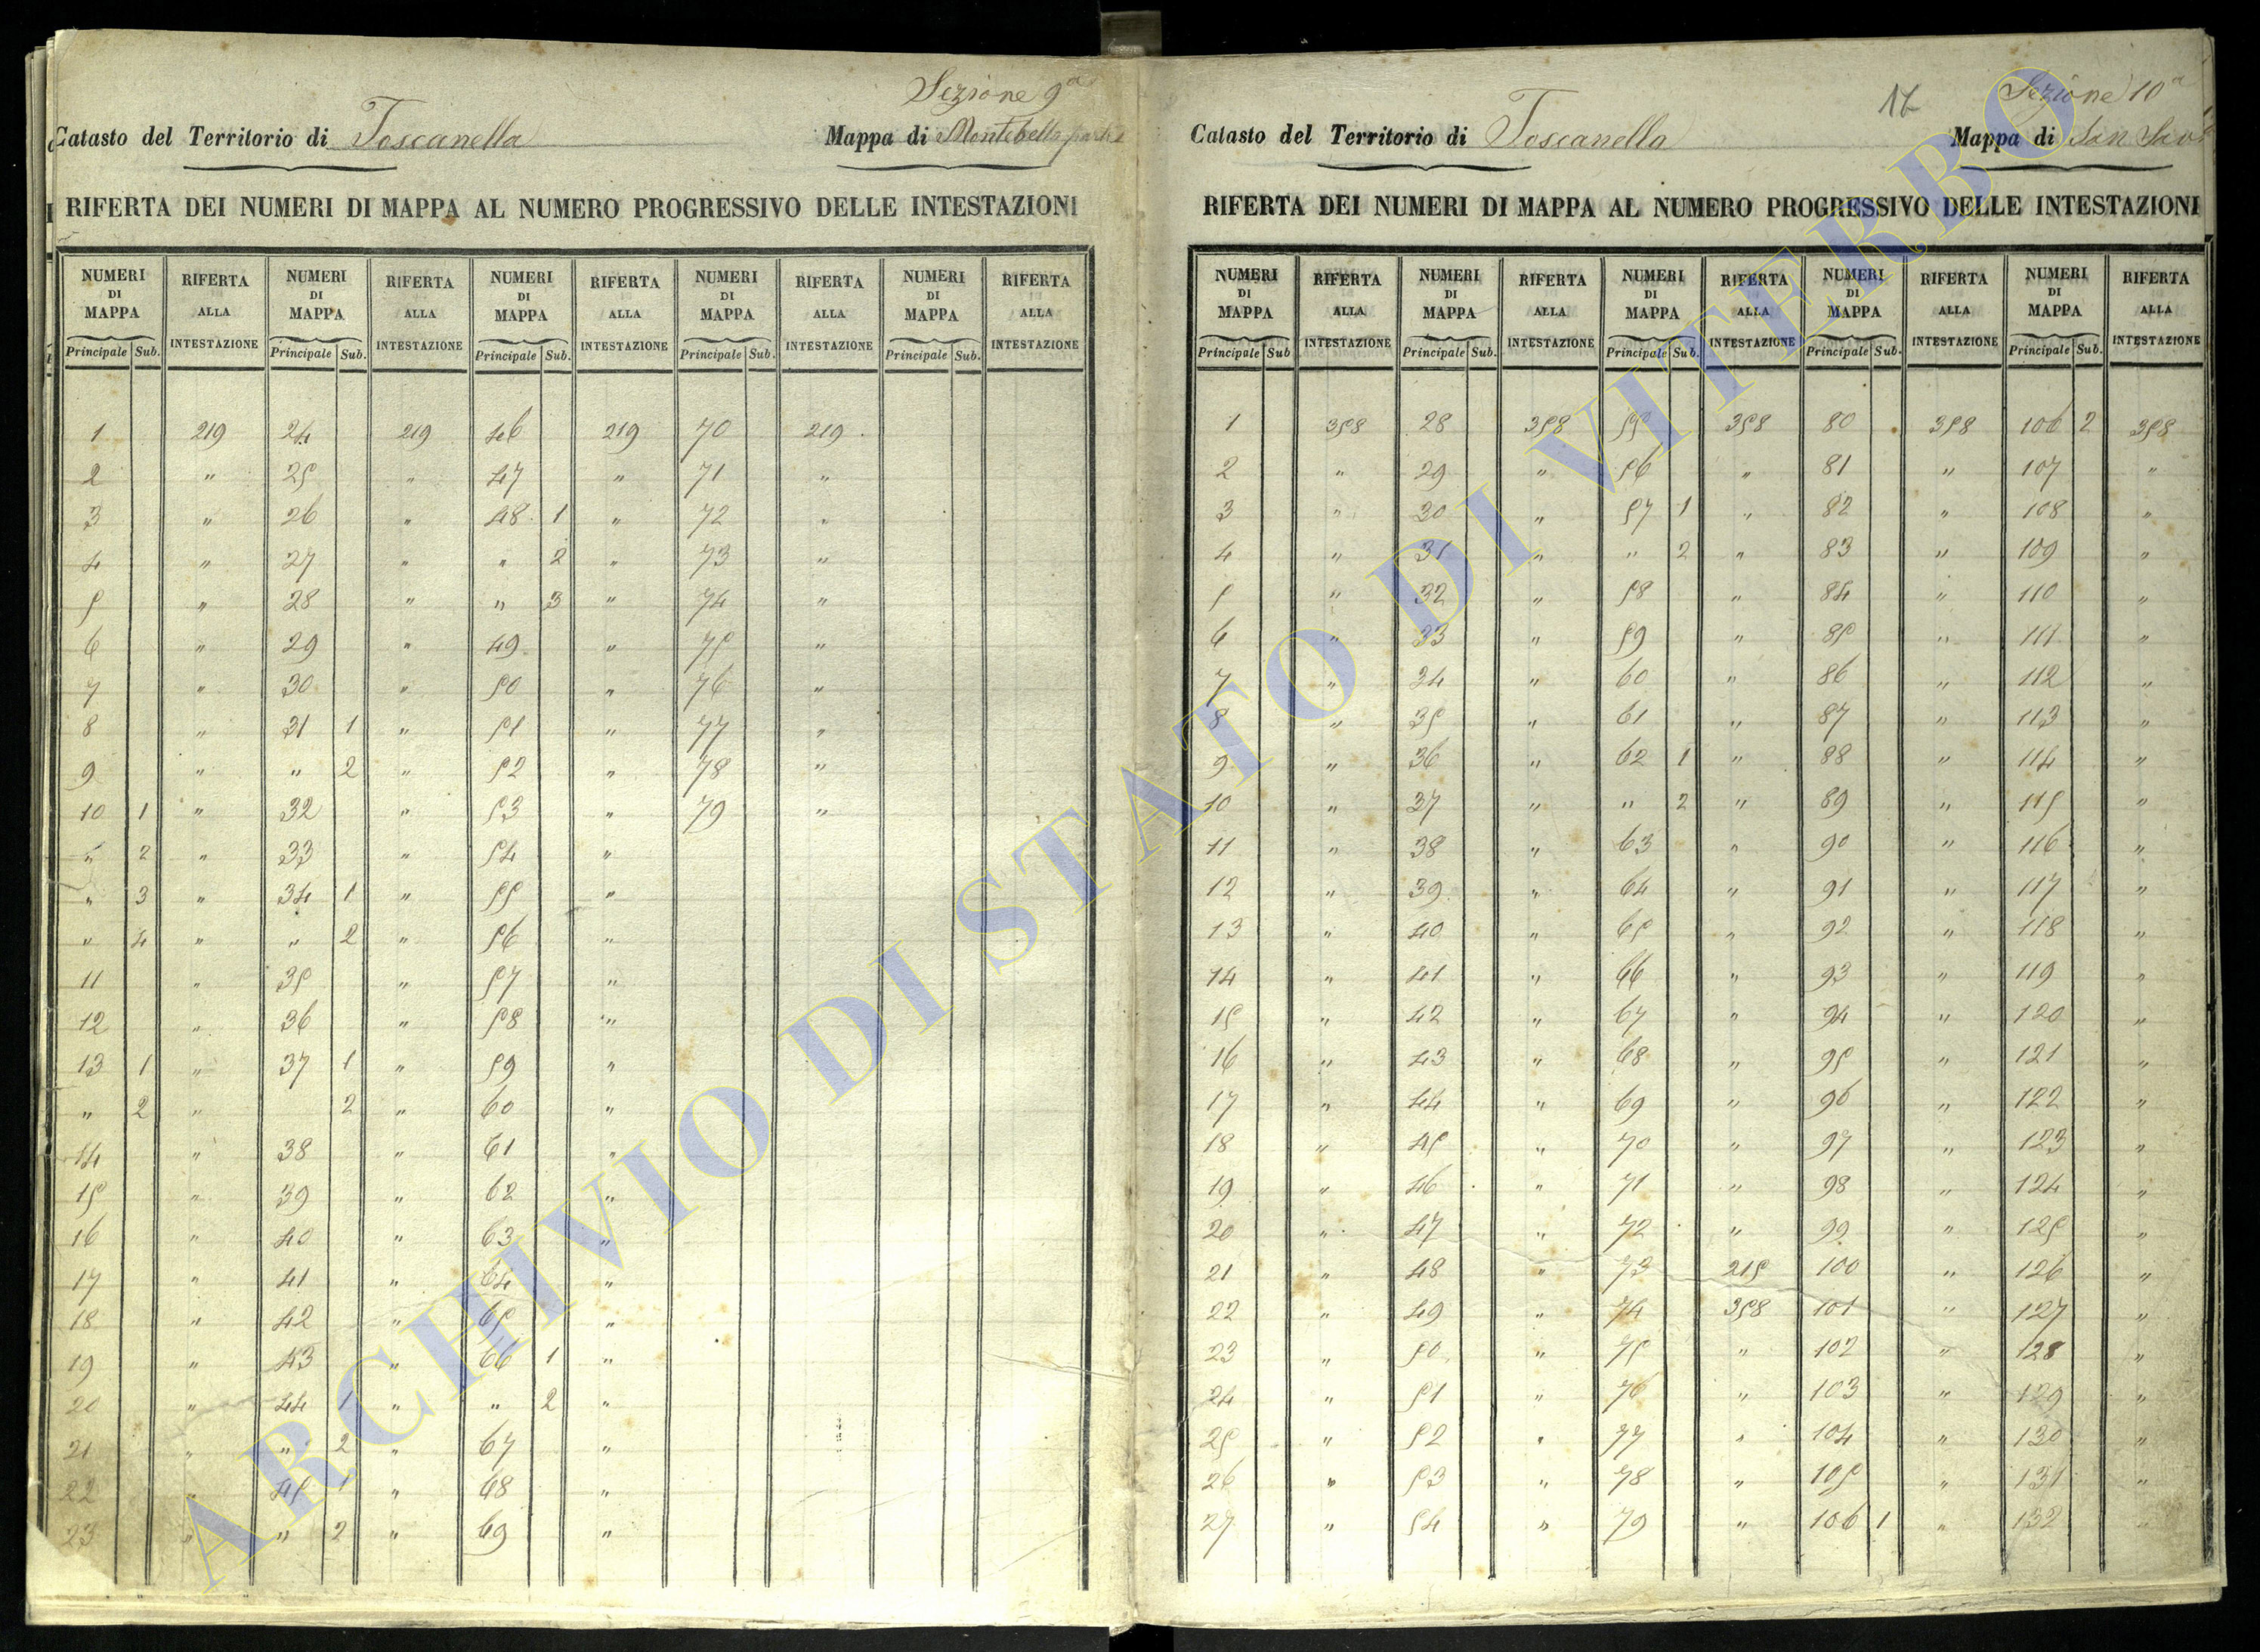 Sezione 9a
Catasto del Territorio di Toscanella Mappa di Montebello parte
RIFERTA DEI NUMERI DI MAPPA AL NUMERO PROGRESSIVO DELLE INTESTAZIONI
NUMERI DI MAPPA RIFERTA ALLA INTESTAZIONE NUMERI DI MAPPA RIFERTA ALLA INTESTAZIONE NUMERI DI MAPPA RIFERTA ALLA INTESTAZIONE NUMERI DI MAPPA RIFERTA ALLA INTESTAZIONE NUMERI DI MAPPA RIFERTA ALLA INTESTAZIONE
Principale Sub. Principale Sub. Principale Sub. Principale Sub. Principale Sub.
1 219 24 219 46 219 70 219
2 " 25 " 47 " 71 "
3 " 26 " 48 1 " 72 "
4 " 27 " " 2 " 73 "
5 " 28 " " 3 " 74 "
6 " 29 " 49 " 75 "
7 " 30 " 50 " 76 "
8 " 31 1 " 51 " 77 "
9 " " 2 " 52 " 78 "
10 1 " 32 " 53 " 79 "
" 2 " 33 " 54 "
" 3 " 34 1 " 55 "
" 4 " " 2 " 56 "
11 " 35 " 57 "
12 " 36 " 58 "
13 1 " 37 1 " 59 "
" 2 " 2 " 60 "
14 " 38 " 61 "
15 " 39 " 62 "
16 " 40 " 63 "
17 " 41 " 64 "
18 " 42 " 65 "
19 " 43 " 66 1 "
20 " 44 1 " " 2 "
21 " " 2 " 67 "
22 " 45 1 " 68 "
23 " " 2 " 69 "
17 Sezione 10a
Catasto del Territorio di Toscanella Mappa di San
RIFERTA DEI NUMERI DI MAPPA AL NUMERO PROGRESSIVO DELLE INTESTAZIONI
NUMERI DI MAPPA RIFERTA ALLA INTESTAZIONE NUMERI DI MAPPA RIFERTA ALLA INTESTAZIONE NUMERI DI MAPPA RIFERTA ALLA INTESTAZIONE NUMERI DI MAPPA RIFERTA ALLA INTESTAZIONE NUMERI DI MAPPA RIFERTA ALLA INTESTAZIONE
Principale Sub Principale Sub. Principale Sub. Principale Sub. Principale Sub.
1 358 28 358 55 358 80 358 106 2 358
2 " 29 " 56 " 81 " 107 "
3 " 30 " 57 1 " 82 " 108 "
4 " 31 " " 2 " 83 " 109 "
5 " 32 " 58 " 84 " 110 "
6 " 33 " 59 " 85 " 111 "
7 " 34 " 60 " 86 " 112 "
8 " 35 " 61 " 87 " 113 "
9 " 36 " 62 1 " 88 " 114 "
10 " 37 " " 2 " 89 " 115 "
11 " 38 " 63 " 90 " 116 "
12 " 39 " 64 " 91 " 117 "
13 " 40 " 65 " 92 " 118 "
14 " 41 " 66 " 93 " 119 "
15 " 42 " 67 " 94 " 120 "
16 " 43 " 68 " 95 " 121 "
17 " 44 " 69 " 96 " 122 "
18 " 45 " 70 " 97 " 123 "
19 " 46 " 71 " 98 " 124 "
20 " 47 " 72 " 99 " 125 "
21 " 48 " 73 215 100 " 126 "
22 " 49 " 74 358 101 " 127 "
23 " 50 " 75 " 102 " 128 "
24 " 51 " 76 " 103 " 129 "
25 " 52 " 77 " 104 " 130 "
26 " 53 " 78 " 105 " 131 "
27 " 54 " 79 " 106 1 " 132 "
ARCHIVIO DI STATO DI VITERBO